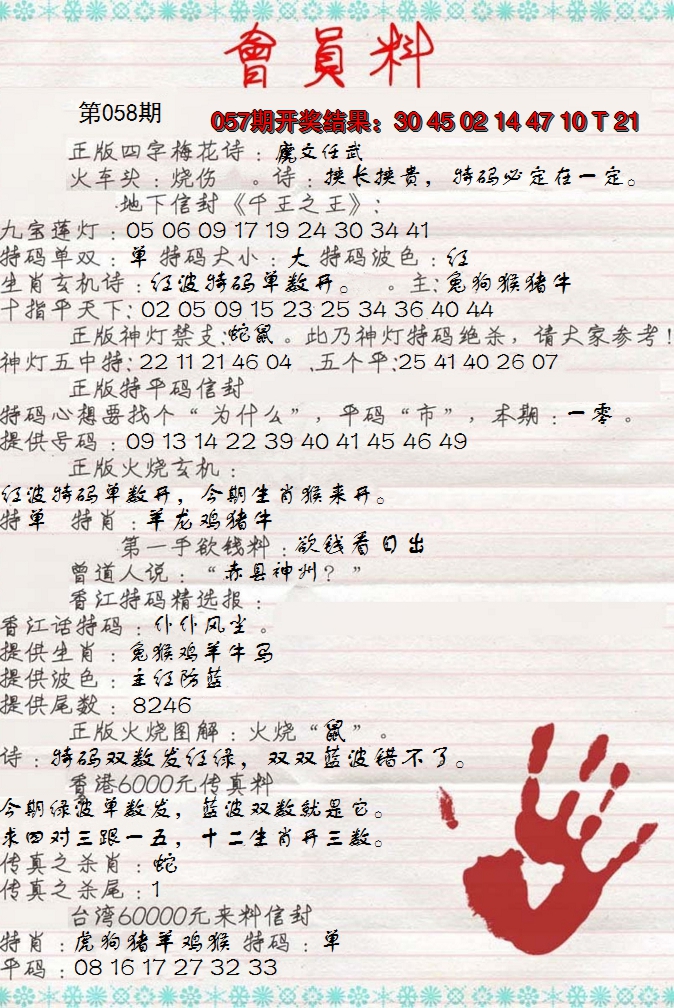 會員料
第058期
057期开奖结果：30 45 02 14 47 10 T 21
正版四字梅花诗：虞文任武
火车头：烧伤 。诗：挟长挟贵，特码必定在一定。
地下信封《千王之王》：
九宝莲灯：05 06 09 17 19 24 30 34 41
特码单双：单 特码大小：大 特码波色：红
生肖玄机诗：红波特码单数开。 。主：兔狗猴猪牛
十指平天下：02 05 09 15 23 25 34 36 40 44
正版神灯禁支：蛇鼠。此乃神灯特码绝杀，请大家参考！
神灯五中特：22 11 21 46 04 .五个平：25 41 40 26 07
正版特平码信封
特码心想要找个“为什么”，平码“市”，本期：一零。
提供号码：09 13 14 22 39 40 41 45 46 49
正版火烧玄机：
红波特码单数开，今期生肖猴来开。
特单 特肖：羊龙鸡猪牛
第一手欲钱料：欲钱看日出
曾道人说：“赤县神州？”
香江特码精选报：
香江话特码：仆仆风尘。
提供生肖：兔猴鸡羊牛马
提供波色：主红防蓝
提供尾数：8246
正版火烧图解：火烧“鼠”。
诗：特码双数发红绿，双双蓝波错不了。
香港6000元传真料
今期绿波单数发，蓝波双数就是它。
来四对三跟一五，十二生肖开三数。
传真之杀肖：蛇
传真之杀尾：1
台湾60000元来料信封
特肖：虎狗猪羊鸡猴 特码：单
平码：08 16 17 27 32 33